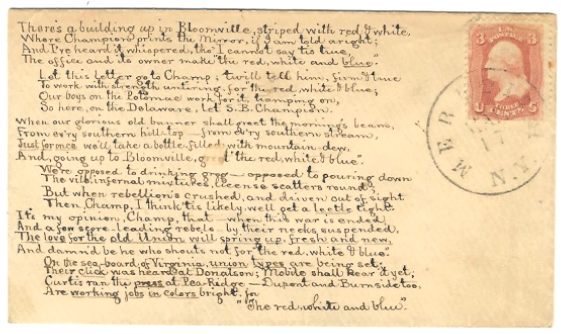 There's a building up in Bloomville, striped with red & white,
Where Champion prints the Mirror, if I am told aright;
And I've heard it whispered, tho' I cannot say tis true,
The office and its owner make "the red, white and blue."
Let this letter go to Champ; twill tell him, firm & true
To work with strength untiring, for the red, white & blue;
Our boys on the Potomac work for it, tramping on,
So here, on the Delaware, let S. B. Champion.
When our glorious old banner shall greet the morning's beams,
From ev'ry southern hill-top — from ev'ry southern stream,
Just for once we'll take a bottle filled with mountain-dew,
And, going up to Bloomville, "the red, white & blue".
We're opposed to drinking grog — opposed to pouring down
The vile infernal mixtures, license scatters round;
But when rebellion's crushed, and driven out of sight
Then, Champ, I think 'tis likely, we'll get a leetle tight.
It's my opinion, Champ, that — when this war is ended
And a few score leading rebels by their necks suspended,
The love for the old Union will spring up, fresh and new,
And damn'd be he who shouts not for the red, white & blue.
On the sea-board of Virginia, union types are being set;
Their click was heard at Donalson; Mobile shall hear it yet;
Curtis ran the press at Pea-Ridge — Dupont and Burnside too,
Are working jobs in colors bright, for
"The red, white and blue".
U.S. POSTAGE
3 3
U THREE CENTS S
MER
17
N.Y.